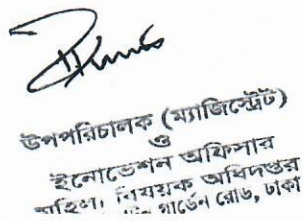 উপপরিচালক (ম্যাজিস্ট্রেট)
ও
ইনোভেশন অফিসার
মহিলা বিষয়ক অধিদপ্তর
গার্ডেন রোড, ঢাকা